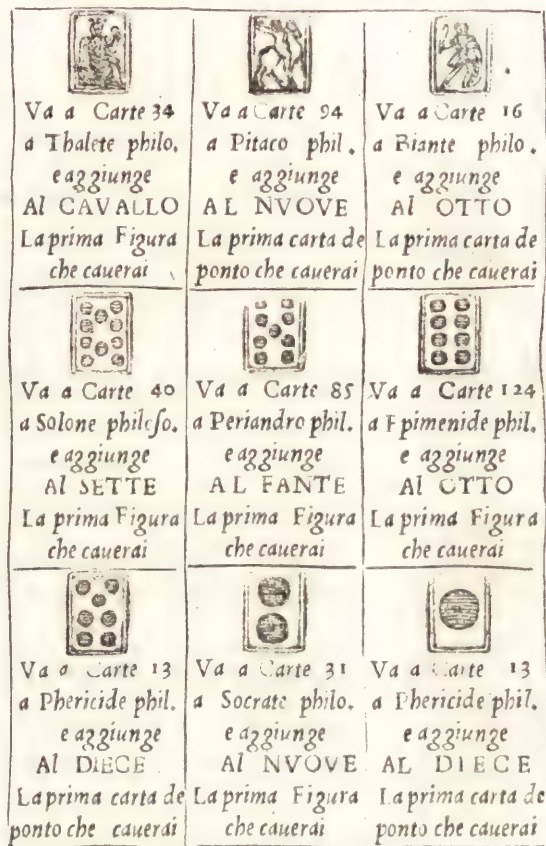 Va a Carte 34
a Thalete philo.
e aggiunge
Al CAVALLO
La prima Figura
che cauerai
Va a Carte 94
a Pitaco phil.
e aggiunge
AL NVOVE
La prima carta de
ponto che cauerai
Va a Carte 16
a Biante philo.
e aggiunge
Al OTTO
La prima carta de
ponto che cauerai
Va a Carte 40
a Solone philoso.
e aggiunge
Al SETTE
La prima Figura
che cauerai
Va a Carte 85
a Periandro phil.
e aggiunge
AL FANTE
La prima Figura
che cauerai
Va a Carte 124
a Epimenide phil.
e aggiunge
Al OTTO
La prima Figura
che cauerai
Va a Carte 13
a Phericide phil.
e aggiunge
Al DIECE
La prima carta de
ponto che cauerai
Va a Carte 31
a Socrate philo.
e aggiunge
Al NVOVE
La prima Figura
che cauerai
Va a Carte 13
a Phericide phil.
e aggiunge
AL DIECE
La prima carta de
ponto che cauerai